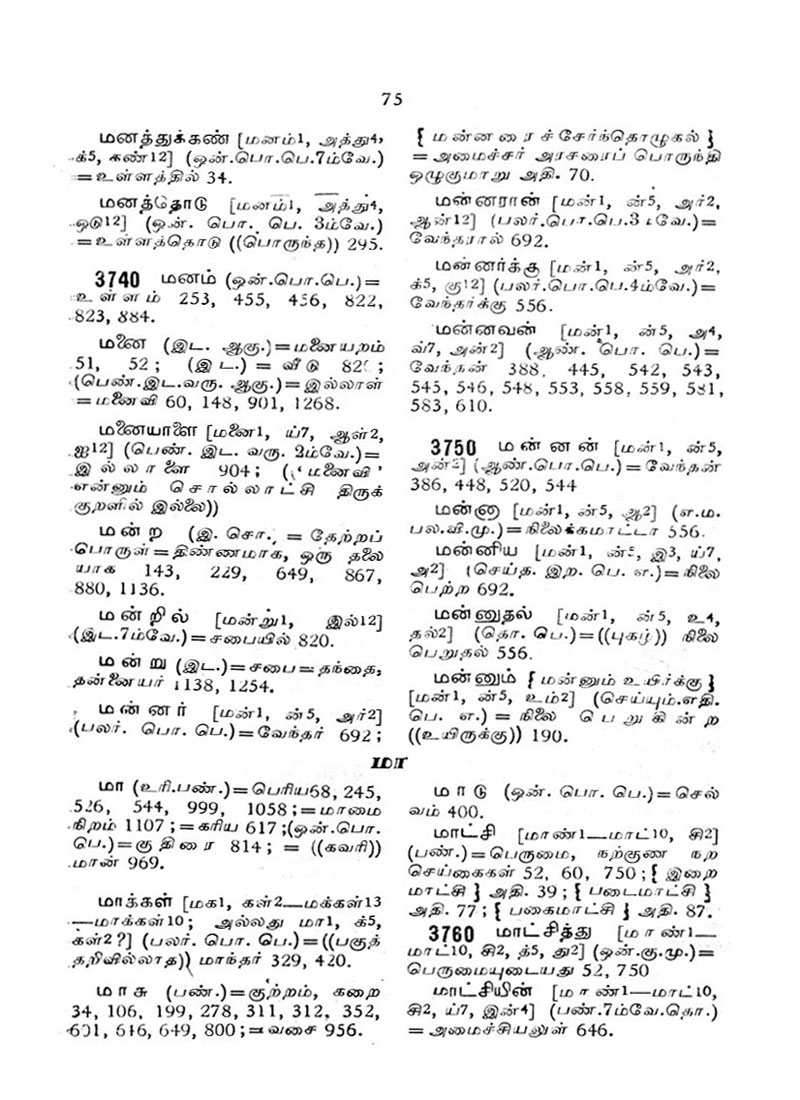 75
மனத்துக்கண் [மனம்1, அத்து4,
க்5, கண்12] (ஒன்.பொ.பெ.7ம்வே.)
=உள்ளத்தில் 34.
மனத்தோடு [மனம்1, அத்து4,
ஒடு12] (ஒன். பொ. பெ. 3ம்வே.)
=உள்ளத்தொடு ((பொருந்த)) 295.
3740 மனம் (ஒன்.பொ.பெ.)=
உள்ளம் 253, 455, 456, 822,
823, 884.
மனை (இட. ஆகு.)=மனையறம்
51, 52; (இட.)= வீடு 820;
(பெண்.இட.வரு. ஆகு.)=இல்லாள்
=மனைவி 60, 148, 901, 1268.
மனையாளை [மனை1, ய்7, ஆள்2,
ஐ12] (பெண். இட. வரு. 2ம்வே.)=
இல்லாளை 904; ('மனைவி'
என்னும் சொல்லாட்சி திருக்
குறளில் இல்லை))
மன்ற (இ. சொ. = தேற்றப்
பொருள்=திண்ணமாக, ஒரு தலை
யாக 143, 229, 649, 867,
880, 1136.
மன்றில் [மன்று1, இல்12]
(இட.7ம்வே.)=சபையில் 820.
மன்று (இட.)=சபை=தந்தை,
தன்னையர் 1138, 1254.
மன்னர் [மன்1, ன்5, அர்2]
(பலர். பொ. பெ.)=வேந்தர் 692;
{மன்னரைச்சேர்ந்தொழுகல்}
=அமைச்சர் அரசரைப் பொருந்தி
ஒழுகுமாறு அதி. 70.
மன்னரான் [மன்1, ன்5, அர்2,
ஆன்12] (பலர்.பொ.பெ.3ம்வே.)=
வேந்தரால் 692.
மன்னர்க்கு [மன்1, ன்5, அர்2,
க்5, கு12] (பலர்.பொ.பெ.4ம்வே.)=
வேந்தர்க்கு 556.
மன்னவன் [மன்1, ன்5, அ4,
வ்7, அன்2] (ஆண். பொ. பெ.)=
வேந்தன் 388, 445, 542, 543,
545, 546, 548, 553, 558, 559, 581,
583, 610.
3750 மன்னன் [மன்1, ன்5,
அன்2] (ஆண்.பொ.பெ.)=வேந்தன்
386, 448, 520, 544
மன்னா [மன்1, ன்5, ஆ2] (எ.ம.
பல.வி.மு.)=நிலைக்கமாட்டா 556.
மன்னிய [மன்1, ன்5, இ3, ய்7,
அ2] (செய்த. இற. பெ. எ.)=நிலை
பெற்ற 692.
மன்னுதல் [மன்1, ன்5, உ4,
தல்2] (தொ. பெ.)=((புகழ்)) நிலை
பெறுதல் 556.
மன்னும் {மன்னும் உயிர்க்கு}
[மன்1, ன்5, உம்2] (செய்யும்.எதி.
பெ. எ.)=நிலை பெறுகின்ற
((உயிருக்கு)) 190.
மா
மா (உரி.பண்.)=பெரிய68, 245,
526, 544, 999, 1058;=மாமை
நிறம் 1107;=கரிய 617;(ஒன்.பொ.
பெ.)=குதிரை 814; = ((கவரி))
மான் 969.
மாக்கள் [மக1, கள்2—மக்கள்13
—மாக்கள்10; அல்லது மா1, க்5,
கள்2?] (பலர். பொ. பெ.)=((பகுத்
தறிவில்லாத)) மாந்தர் 329, 420.
மாசு (பண்.)=குற்றம், கறை
34, 106, 199, 278, 311, 312, 352,
601, 646, 649, 800;=வசை 956.
மாடு (ஒன். பொ. பெ.)=செல்
வம் 400.
மாட்சி [மாண்1—மாட்10, சி2]
(பண்.)=பெருமை, நற்குண நற
செய்கைகள் 52, 60, 750;{இறை
மாட்சி} அதி. 39;{படைமாட்சி}
அதி. 77;{பகைமாட்சி} அதி. 87.
3760 மாட்சித்து [மாண்1—
மாட்10, சி2, த்5, து2] (ஒன்.கு.மு.)=
பெருமையுடையது 52, 750
மாட்சியின் [மாண்1—மாட்10,
சி2, ய்7, இன்4] (பண்.7ம்வே.தொ.)
=அமைச்சியலுள் 646.